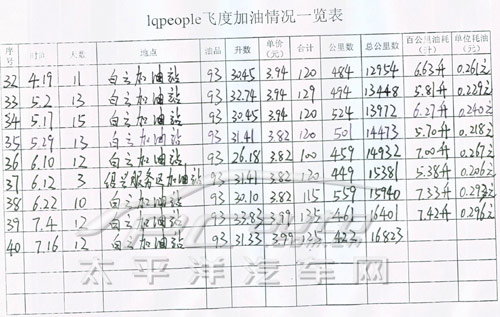 lqpeople飞度加油情况一览表
序号 时间 天数 地点 油品 升数 单价(元) 合计 公里数 总公里数 百公里油耗(升) 单位耗油(元)
32 4.19 11 白云加油站 93 30.45 3.94 120 484 12954 6.63升 0.261元
33 5.2 13 白云加油站 93 32.74 3.94 129 494 13448 5.81升 0.229元
34 5.17 15 白云加油站 93 30.45 3.94 120 524 13972 6.27升 0.240元
35 5.29 13 白云加油站 93 31.41 3.82 120 501 14473 5.70升 0.218元
36 6.10 12 白云加油站 93 26.18 3.82 100 459 14932 7.00升 0.267元
37 6.12 3 服务区加油站 93 31.41 3.82 120 449 15381 5.38升 0.206元
38 6.22 10 白云加油站 93 30.10 3.82 115 559 15940 7.33升 0.293元
39 7.4 12 白云加油站 93 33.83 3.99 135 461 16401 7.42升 0.296元
40 7.16 12 白云加油站 93 31.33 3.99 125 422 16823
太平洋汽车网